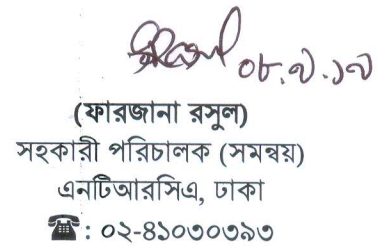 ০৮.৭.১৭
(ফারজানা রসুল)
সহকারী পরিচালক (সমন্বয়)
এনটিআরসিএ, ঢাকা
☎: ০২-৪১০৩০৩৯৩